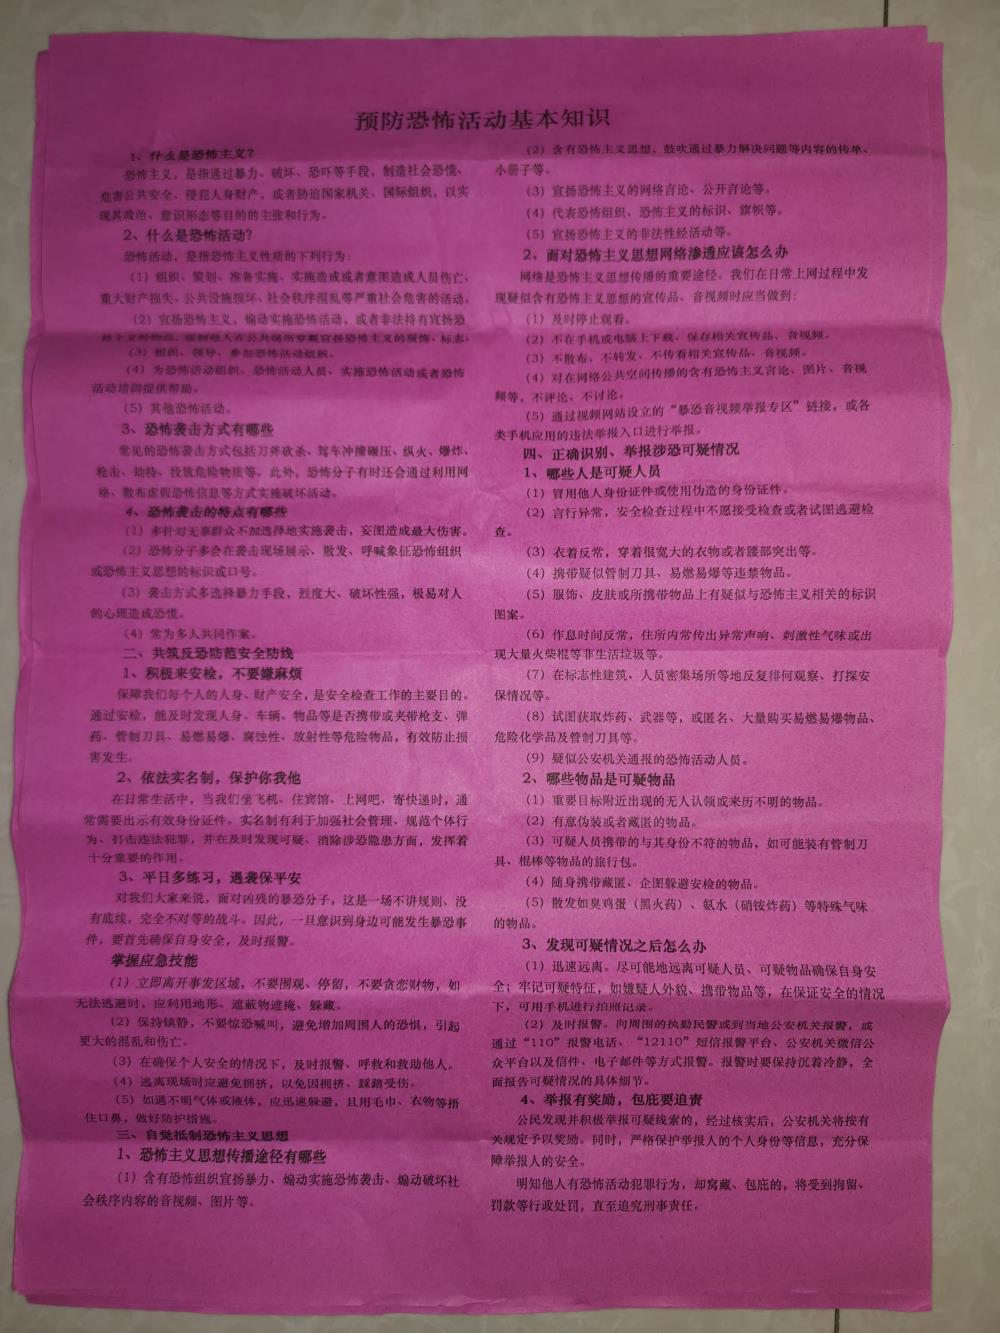 预防恐怖活动基本知识
1、什么是恐怖主义？
恐怖主义，是指通过暴力、破坏、恐吓等手段，制造社会恐慌、
危害公共安全、侵犯人身财产，或者胁迫国家机关、国际组织，以实
现其政治、意识形态等目的的主张和行为。
2、什么是恐怖活动？
恐怖活动，是指恐怖主义性质的下列行为：
（1）组织、策划、准备实施、实施造成或者意图造成人员伤亡、
重大财产损失、公共设施损坏、社会秩序混乱等严重社会危害的活动。
（2）宣扬恐怖主义，煽动实施恐怖活动，或者非法持有宣扬恐
怖主义的物品，强制他人在公共场所穿戴宣扬恐怖主义的服饰、标志。
（3）组织、领导、参加恐怖活动组织。
（4）为恐怖活动组织、恐怖活动人员、实施恐怖活动或者恐怖
活动培训提供帮助。
（5）其他恐怖活动。
3、恐怖袭击方式有哪些
常见的恐怖袭击方式包括刀斧砍杀、驾车冲撞碾压、纵火、爆炸、
枪击、劫持、投放危险物质等。此外，恐怖分子有时还会通过利用网
络、散布虚假恐怖信息等方式实施破坏活动。
4、恐怖袭击的特点有哪些
（1）多针对无辜群众不加选择地实施袭击，妄图造成最大伤害。
（2）恐怖分子多会在袭击现场展示、散发、呼喊象征恐怖组织
或恐怖主义思想的标识或口号。
（3）袭击方式多选择暴力手段，烈度大、破坏性强，极易对人
的心理造成恐慌。
（4）常为多人共同作案。
二、共筑反恐防范安全防线
1、积极来安检，不要嫌麻烦
保障我们每个人的人身、财产安全，是安全检查工作的主要目的。
通过安检，能及时发现人身、车辆、物品等是否携带或夹带枪支、弹
药、管制刀具、易燃易爆、腐蚀性、放射性等危险物品，有效防止损
害发生。
2、依法实名制，保护你我他
在日常生活中，当我们坐飞机、住宾馆、上网吧、寄快递时，通
常需要出示有效身份证件。实名制有利于加强社会管理、规范个体行
为、打击违法犯罪，并在及时发现可疑、消除涉恐隐患方面，发挥着
十分重要的作用。
3、平日多练习，遇袭保平安
对我们大家来说，面对凶残的暴恐分子，这是一场不讲规则、没
有底线，完全不对等的战斗。因此，一旦意识到身边可能发生暴恐事
件，要首先确保自身安全，及时报警。
掌握应急技能
（1）立即离开事发区域，不要围观、停留，不要贪恋财物，如
无法逃避时，应利用地形、遮蔽物遮掩、躲藏。
（2）保持镇静，不要惊恐喊叫，避免增加周围人的恐惧，引起
更大的混乱和伤亡。
（3）在确保个人安全的情况下，及时报警、呼救和救助他人。
（4）逃离现场时应避免拥挤，以免因拥挤、踩踏受伤。
（5）如遇不明气体或液体，应迅速躲避，且用毛巾、衣物等捂
住口鼻，做好防护措施。
三、自觉抵制恐怖主义思想
1、恐怖主义思想传播途径有哪些
（1）含有恐怖组织宣扬暴力、煽动实施恐怖袭击、煽动破坏社
会秩序内容的音视频、图片等。
（2）含有恐怖主义思想，鼓吹通过暴力解决问题等内容的传单、
小册子等。
（3）宣扬恐怖主义的网络言论、公开言论等。
（4）代表恐怖组织、恐怖主义的标识、旗帜等。
（5）宣扬恐怖主义的非法性经活动等。
2、面对恐怖主义思想网络渗透应该怎么办
网络是恐怖主义思想传播的重要途径。我们在日常上网过程中发
现疑似含有恐怖主义思想的宣传品、音视频时应当做到：
（1）及时停止观看。
（2）不在手机或电脑上下载、保存相关宣传品、音视频。
（3）不散布、不转发、不传看相关宣传品、音视频。
（4）对在网络公共空间传播的含有恐怖主义言论、图片、音视
频等，不评论、不讨论。
（5）通过视频网站设立的“暴恐音视频举报专区”链接，或各
类手机应用的违法举报入口进行举报。
四、正确识别、举报涉恐可疑情况
1、哪些人是可疑人员
（1）冒用他人身份证件或使用伪造的身份证件。
（2）言行异常，安全检查过程中不愿接受检查或者试图逃避检
查。
（3）衣着反常，穿着很宽大的衣物或者腰部突出等。
（4）携带疑似管制刀具、易燃易爆等违禁物品。
（5）服饰、皮肤或所携带物品上有疑似与恐怖主义相关的标识
图案。
（6）作息时间反常，住所内常传出异常声响、刺激性气味或出
现大量火柴棍等非生活垃圾等。
（7）在标志性建筑、人员密集场所等地反复徘徊观察、打探安
保情况等。
（8）试图获取炸药、武器等，或匿名、大量购买易燃易爆物品、
危险化学品及管制刀具等。
（9）疑似公安机关通报的恐怖活动人员。
2、哪些物品是可疑物品
（1）重要目标附近出现的无人认领或来历不明的物品。
（2）有意伪装或者藏匿的物品。
（3）可疑人员携带的与其身份不符的物品，如可能装有管制刀
具、棍棒等物品的旅行包。
（4）随身携带藏匿、企图躲避安检的物品。
（5）散发如臭鸡蛋（黑火药）、氨水（硝铵炸药）等特殊气味
的物品。
3、发现可疑情况之后怎么办
（1）迅速远离。尽可能地远离可疑人员、可疑物品确保自身安
全；牢记可疑特征，如嫌疑人外貌、携带物品等，在保证安全的情况
下，可用手机进行拍照记录。
（2）及时报警。向周围的执勤民警或到当地公安机关报警，或
通过“110”报警电话、“12110”短信报警平台、公安机关微信公
众平台以及信件、电子邮件等方式报警。报警时要保持沉着冷静，全
面报告可疑情况的具体细节。
4、举报有奖励，包庇要追责
公民发现并积极举报可疑线索的，经过核实后，公安机关将按有
关规定予以奖励。同时，严格保护举报人的个人身份等信息，充分保
障举报人的安全。
明知他人有恐怖活动犯罪行为，却窝藏、包庇的，将受到拘留、
罚款等行政处罚，直至追究刑事责任。